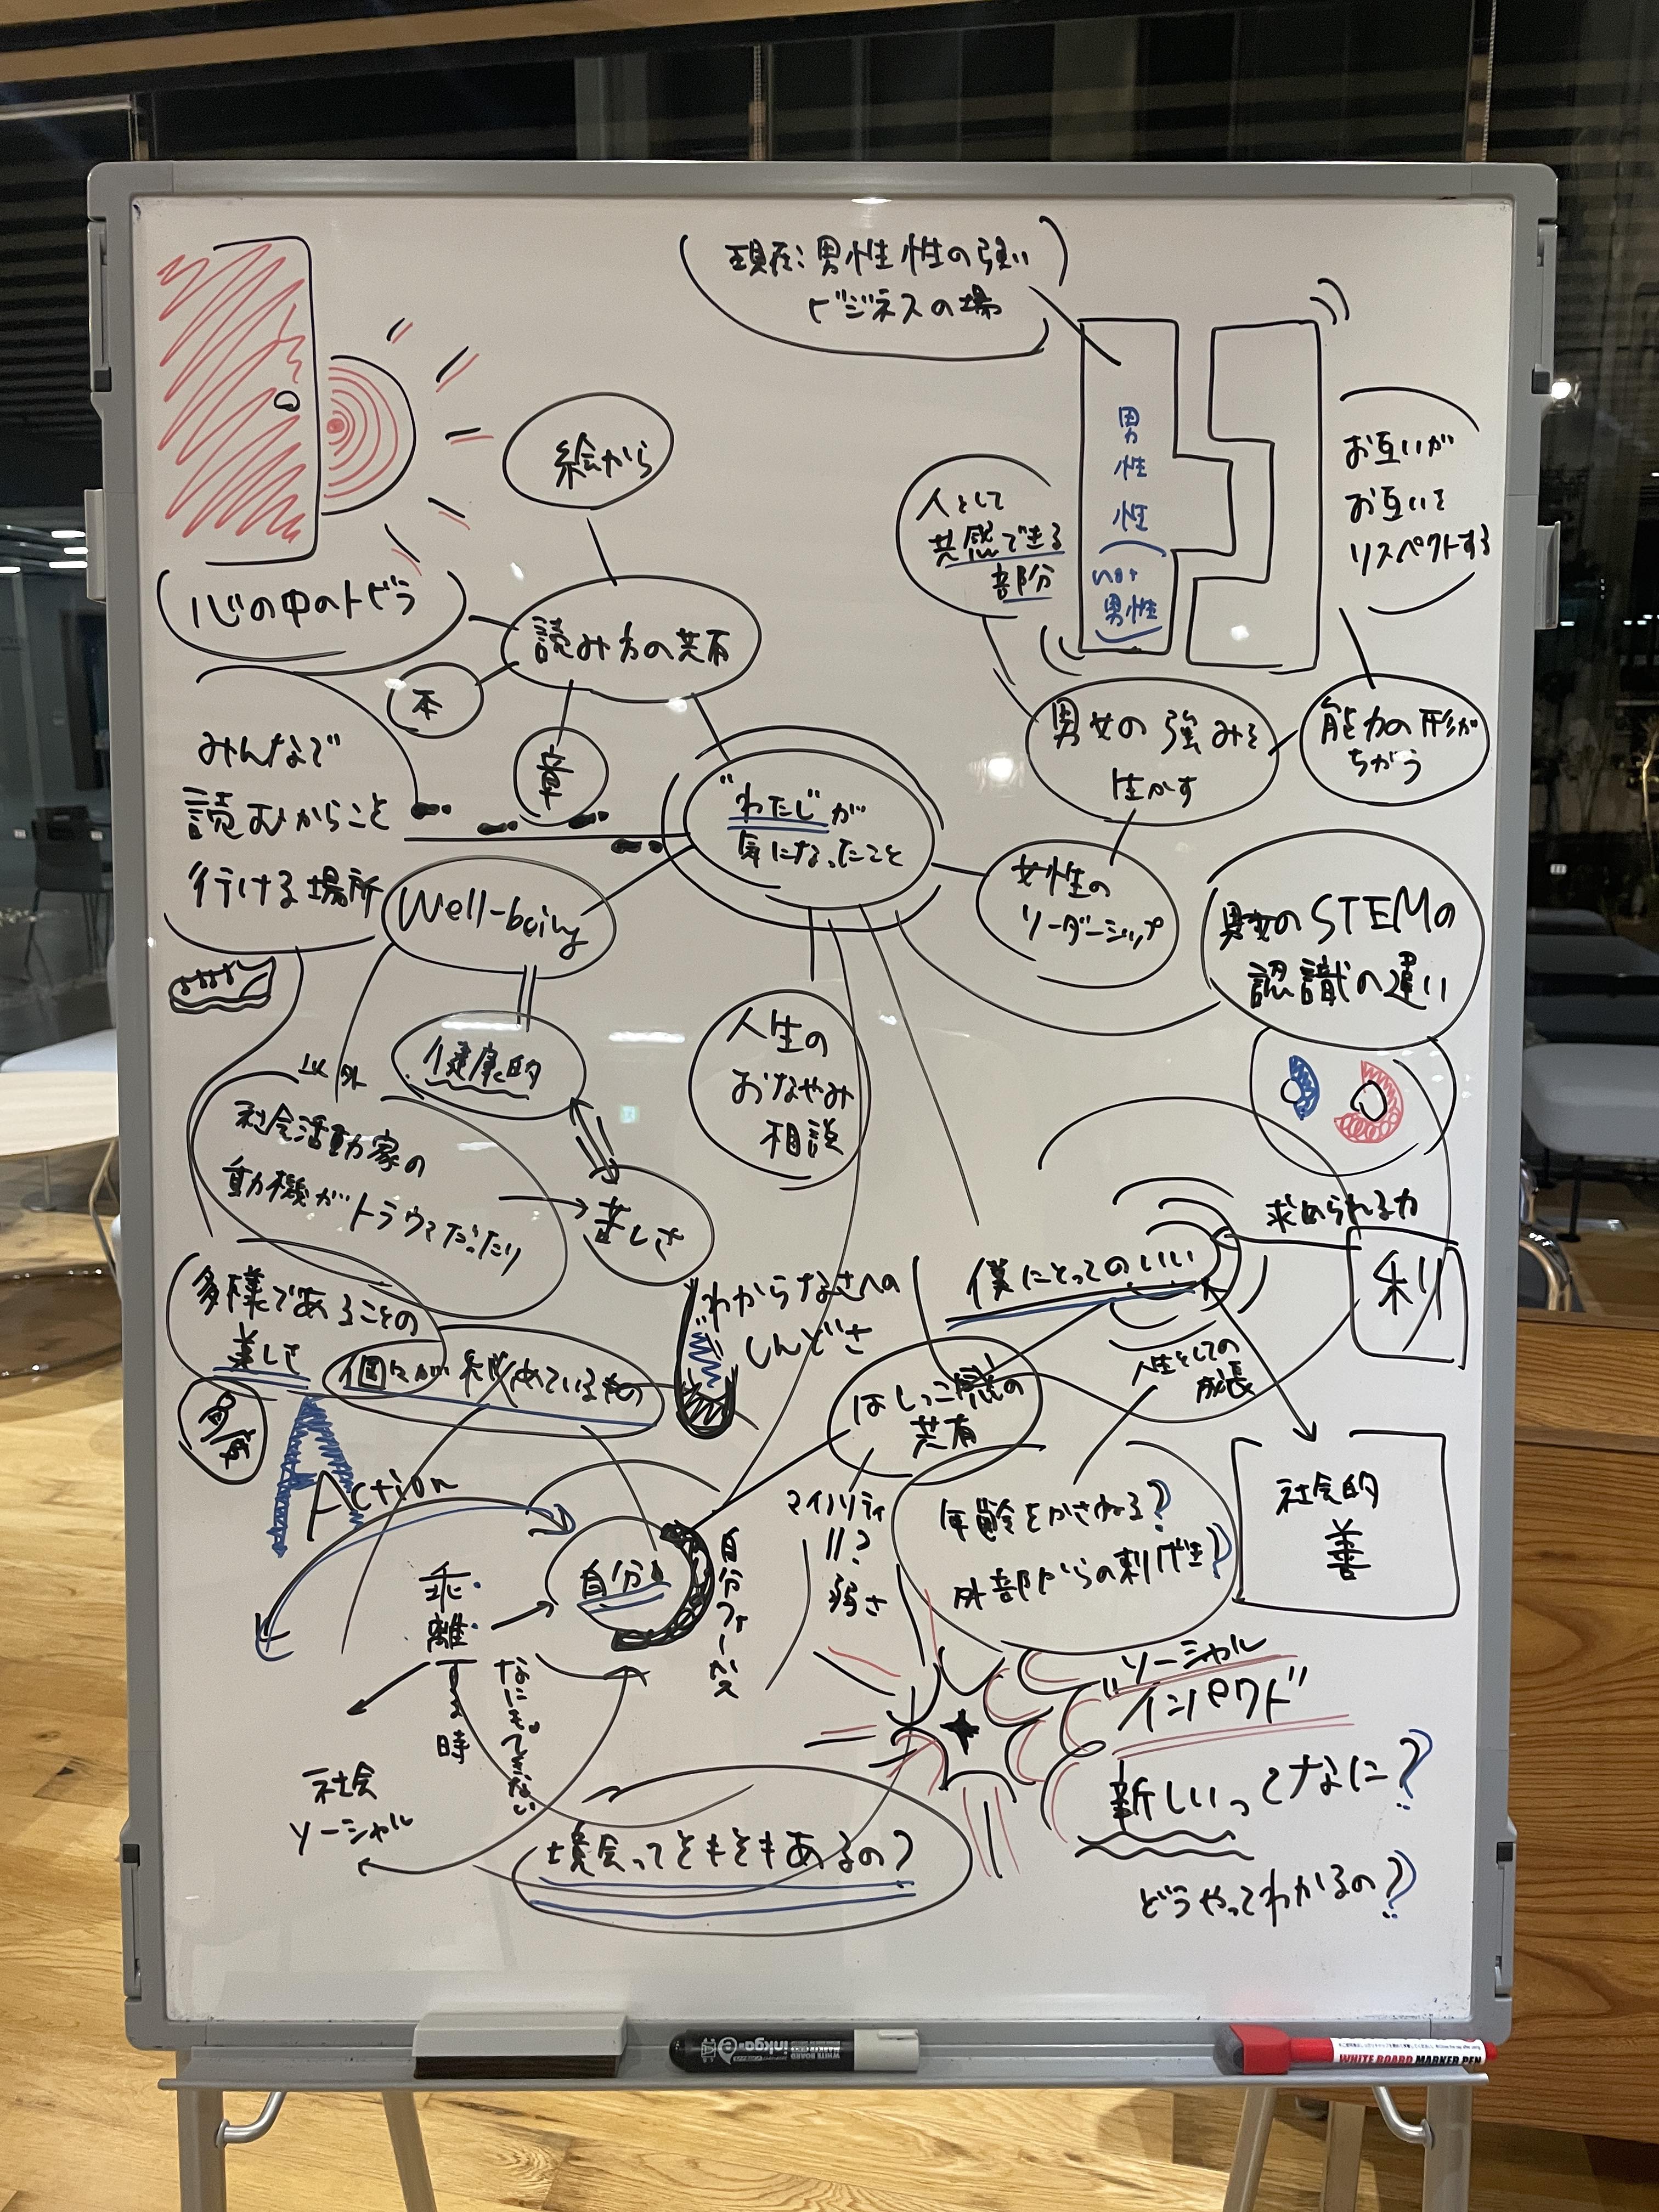 現在:男性性の強い
ビジネスの場
男
性
性
not
男性
お互いが
お互いを
リスペクトする
人として
共感できる
部分
絵から
心の中のトビラ
読み方の共有
本
章
みんなで
読むからこと
行ける場所
"わたし"が
気になったこと
男女の強みを
生かす
能力の形が
ちがう
女性の
リーダーシップ
男女のSTEMの
認識の違い
Well-being
健康的
以外
社会活動家の
動機がトラウマだったり
苦しさ
人生の
おなやみ
相談
求められる力
利
僕にとってのいい
人生としての
成長
社会的
善
多様であることの
美しさ
個々が秘めているもの
わからなさへの
しんどさ
はしっこ感の
共有
マイノリティ
||?
弱さ
年齢をかさねる?
外部からの刺げき?
A
Action
自分
自分フォーカス
乖離する時
なにもできない
社会
ソーシャル
境会ってそもそもあるの?
"ソーシャル
インパクト"
新しいってなに?
どうやってわかるの?
inkga
WHITE BOARD
WHITE BOARD MARKER PEN